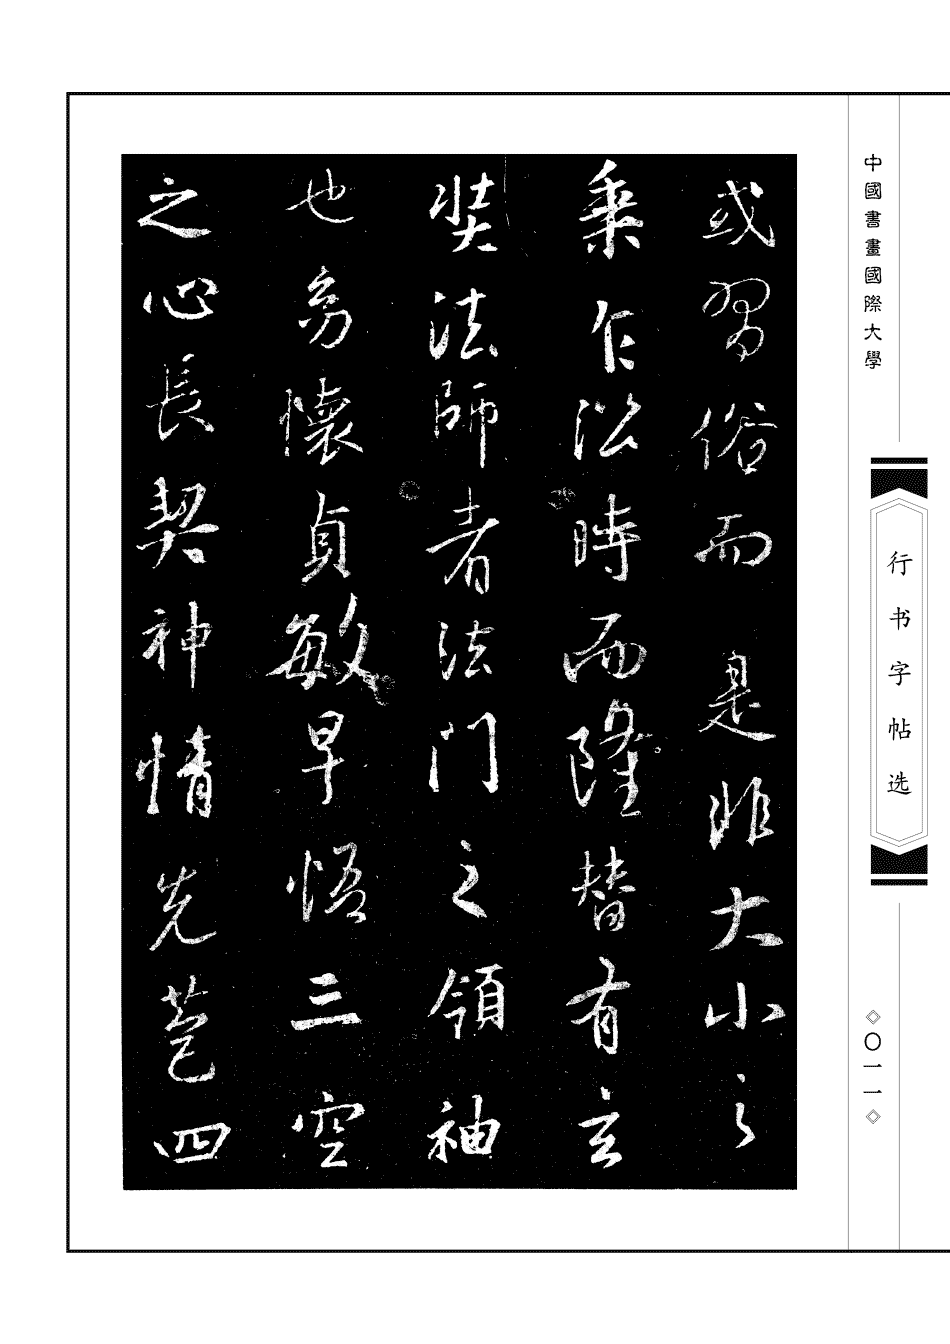 中國書畫國際大學
行书字帖选
〇一一
或習俗而是非大小之
乘乍沿時而隆替有玄
奘法師者法門之領袖
也㓜懷貞敏早悟三空
之心長契神情先苞四